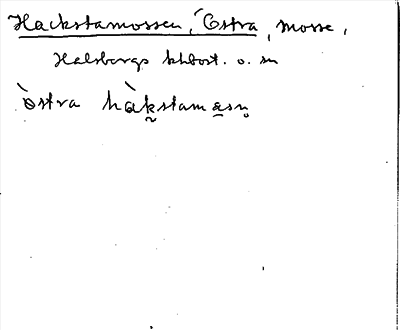 Hackstamossen, Östra, mosse,
Halsbergs kbost. o. sn
òstra hàkstamasn